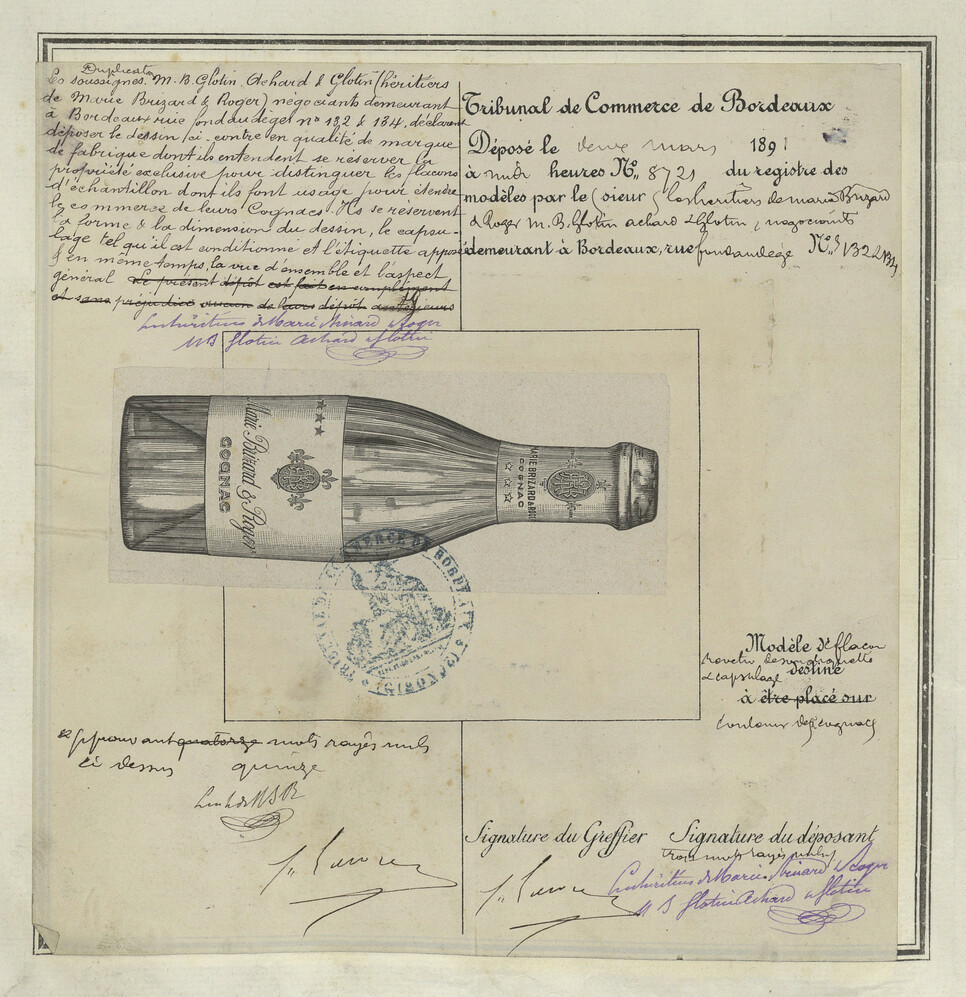 Duplicata
Les soussignés M. B. Glotin, Achard & Glotin (héritiers
de Marie Brizard & Roger) négociants demeurant
à Bordeaux rue fondaudège nos 132 & 134, déclarent
déposer le dessin ci-contre en qualité de marque
de fabrique dont ils entendent se réserver la
propriété exclusive pour distinguer les flacons
d'échantillon dont ils font usage pour étendre
le commerce de leurs Cognacs. Ils se réservent
la forme & la dimension du dessin, le capsu-
lage tel qu'il est conditionné et l'étiquette apposée
& en même temps, la vue d'ensemble et l'aspect
général Le présent dépôt est fait en complément
et sans préjudice aucun de leurs dépôts antérieurs
Les héritiers de Marie Brizard & Roger
M B Glotin Achard & Glotin
Tribunal de Commerce de Bordeaux
Déposé le deux mars 1891
à midi heures No. 8721 du registre des
modèles par le (sieur) Les héritiers de Marie Brizard
& Roger M. B. Glotin Achard & Glotin, négociants
demeurant à Bordeaux, rue fondaudège Nos 132 & 134
Marie Brizard & Roger
COGNAC
MARIE BRIZARD & ROGER
COGNAC
TRIBUNAL DE COMMERCE DE BORDEAUX
(GIRONDE)
Modèle de flacon
revêtu de son étiquette
& capsulage destiné
à être placé sur
contenir des cognacs
approuvant quatorze mots rayés nuls
ci dessus quinze
Les h. de M B R
Signature du Greffier
Signature du déposant
trois mots rayés nuls
Les héritiers de Marie Brizard & Roger
M B Glotin Achard & Glotin